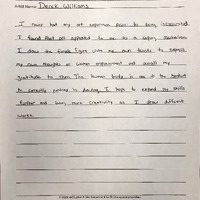 Artist Name: Derek Williams
I never had any art experience prior to being incarcerated.
I found that art appealed to me as a coping mechanism.
I draw the female figure with my own twists to express
my own thoughts of women empowerment and overall my
gratitude to them. The human body is one of the hardest
to correctly portray in drawing. I hope to expand my skills
further and bring more creativity as I draw different
works.